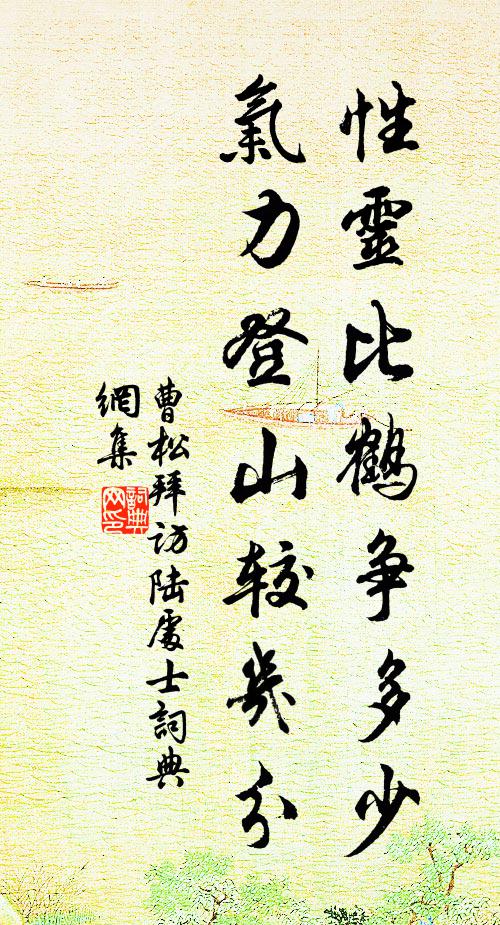 性靈比鹤争多少
氣力登山较幾分
曹松拜访陆處士詞典
網集
詞典
网印